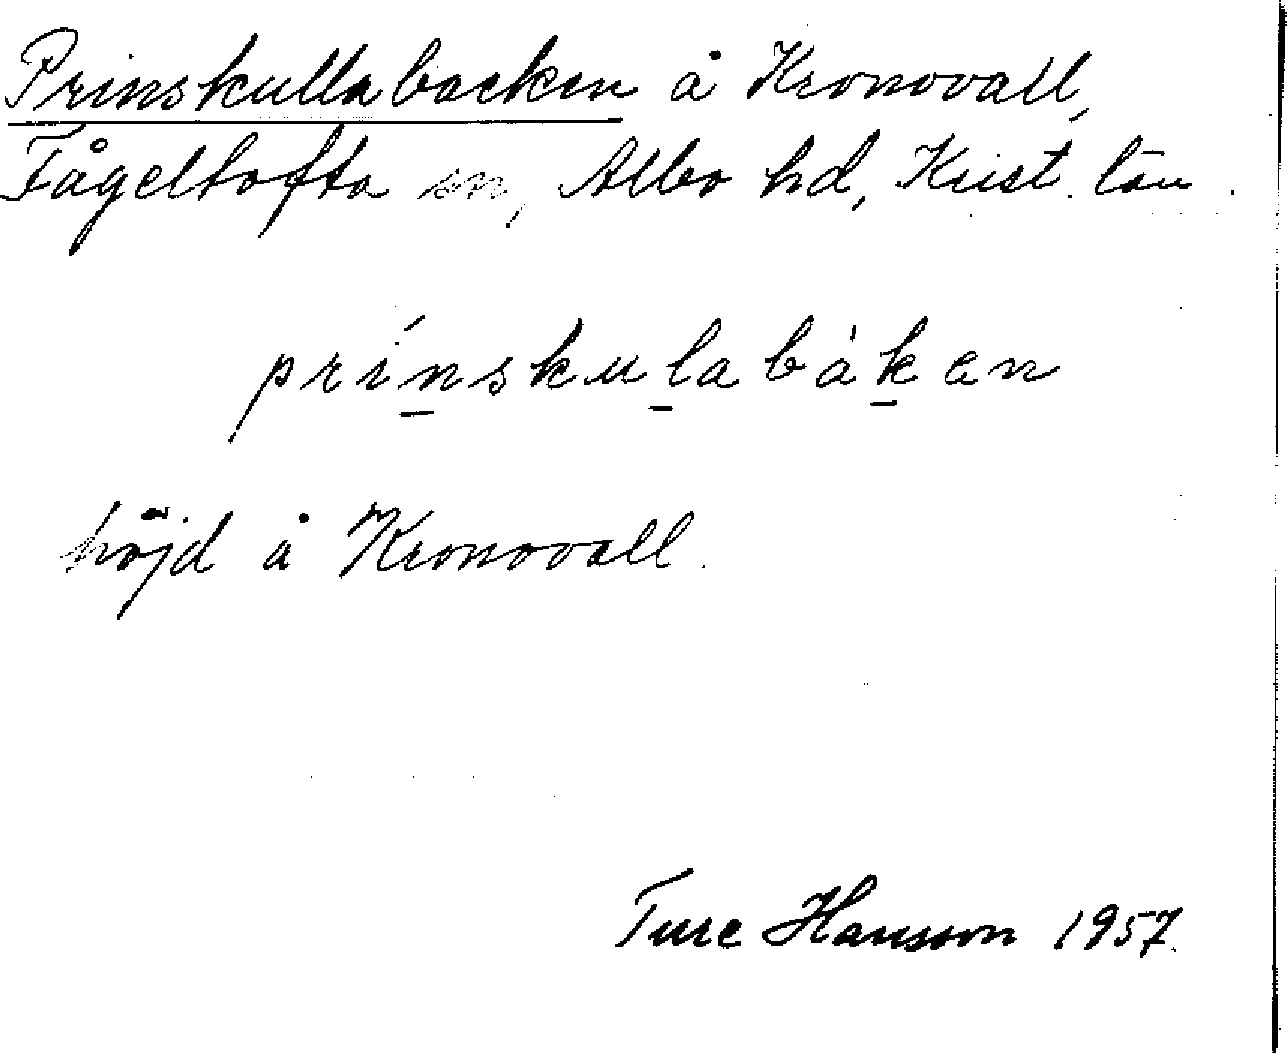 Prinskullabacken å Kronovall,
Fågeltofta sn, Albo hd, Krist. län.
prínskulabàken
höjd å Kronovall.
Ture Hansson 1957.